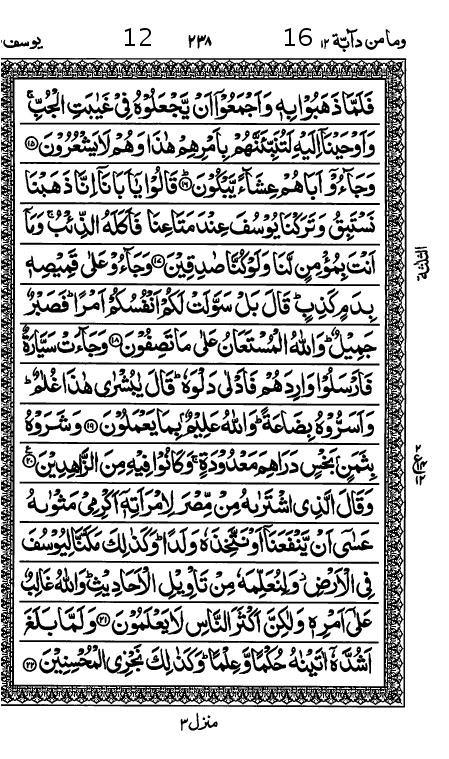 وما من دآبّة ١٢ 16 ٢٣٨ 12 يوسف
فَلَمَّا ذَهَبُوْا بِهٖ وَاَجْمَعُوْۤا اَنْ يَّجْعَلُوْهُ فِيْ غَيٰبَتِ الْجُبِّ ۚ
وَاَوْحَيْنَاۤ اِلَيْهِ لَتُنَبِّئَنَّهُمْ بِاَمْرِهِمْ هٰذَا وَهُمْ لَا يَشْعُرُوْنَ ﴿١٥﴾
وَجَآءُوْۤ اَبَاهُمْ عِشَآءً يَّبْكُوْنَ ؕ﴿١٦﴾ قَالُوْا يٰۤاَبَانَاۤ اِنَّا ذَهَبْنَا
نَسْتَبِقُ وَتَرَكْنَا يُوْسُفَ عِنْدَ مَتَاعِنَا فَاَكَلَهُ الذِّئْبُ ۚ وَمَاۤ
اَنْتَ بِمُؤْمِنٍ لَّنَا وَلَوْ كُنَّا صٰدِقِيْنَ ﴿١٧﴾ وَجَآءُوْ عَلٰى قَمِيْصِهٖ
بِدَمٍ كَذِبٍ ؕ قَالَ بَلْ سَوَّلَتْ لَكُمْ اَنْفُسُكُمْ اَمْرًا ؕ فَصَبْرٌ
جَمِيْلٌ ؕ وَاللّٰهُ الْمُسْتَعَانُ عَلٰى مَا تَصِفُوْنَ ﴿١٨﴾ وَجَآءَتْ سَيَّارَةٌ
فَاَرْسَلُوْا وَارِدَهُمْ فَاَدْلٰى دَلْوَهٗ ؕ قَالَ يٰبُشْرٰى هٰذَا غُلٰمٌ ؕ
وَاَسَرُّوْهُ بِضَاعَةً ؕ وَاللّٰهُ عَلِيْمٌۢ بِمَا يَعْمَلُوْنَ ﴿١٩﴾ وَشَرَوْهُ
بِثَمَنٍۢ بَخْسٍ دَرَاهِمَ مَعْدُوْدَةٍ ۚ وَكَانُوْا فِيْهِ مِنَ الزّٰهِدِيْنَ ﴿٢٠﴾
وَقَالَ الَّذِي اشْتَرٰىهُ مِنْ مِّصْرَ لِامْرَاَتِهٖۤ اَكْرِمِيْ مَثْوٰىهُ
عَسٰۤى اَنْ يَّنْفَعَنَاۤ اَوْ نَتَّخِذَهٗ وَلَدًا ؕ وَكَذٰلِكَ مَكَّنَّا لِيُوْسُفَ
فِي الْاَرْضِ ؗ وَلِنُعَلِّمَهٗ مِنْ تَاْوِيْلِ الْاَحَادِيْثِ ؕ وَاللّٰهُ غَالِبٌ
عَلٰۤى اَمْرِهٖ وَلٰكِنَّ اَكْثَرَ النَّاسِ لَا يَعْلَمُوْنَ ﴿٢١﴾ وَلَمَّا بَلَغَ
اَشُدَّهٗۤ اٰتَيْنٰهُ حُكْمًا وَّعِلْمًا ؕ وَكَذٰلِكَ نَجْزِي الْمُحْسِنِيْنَ ﴿٢٢﴾
الثلثة
منزل ٣